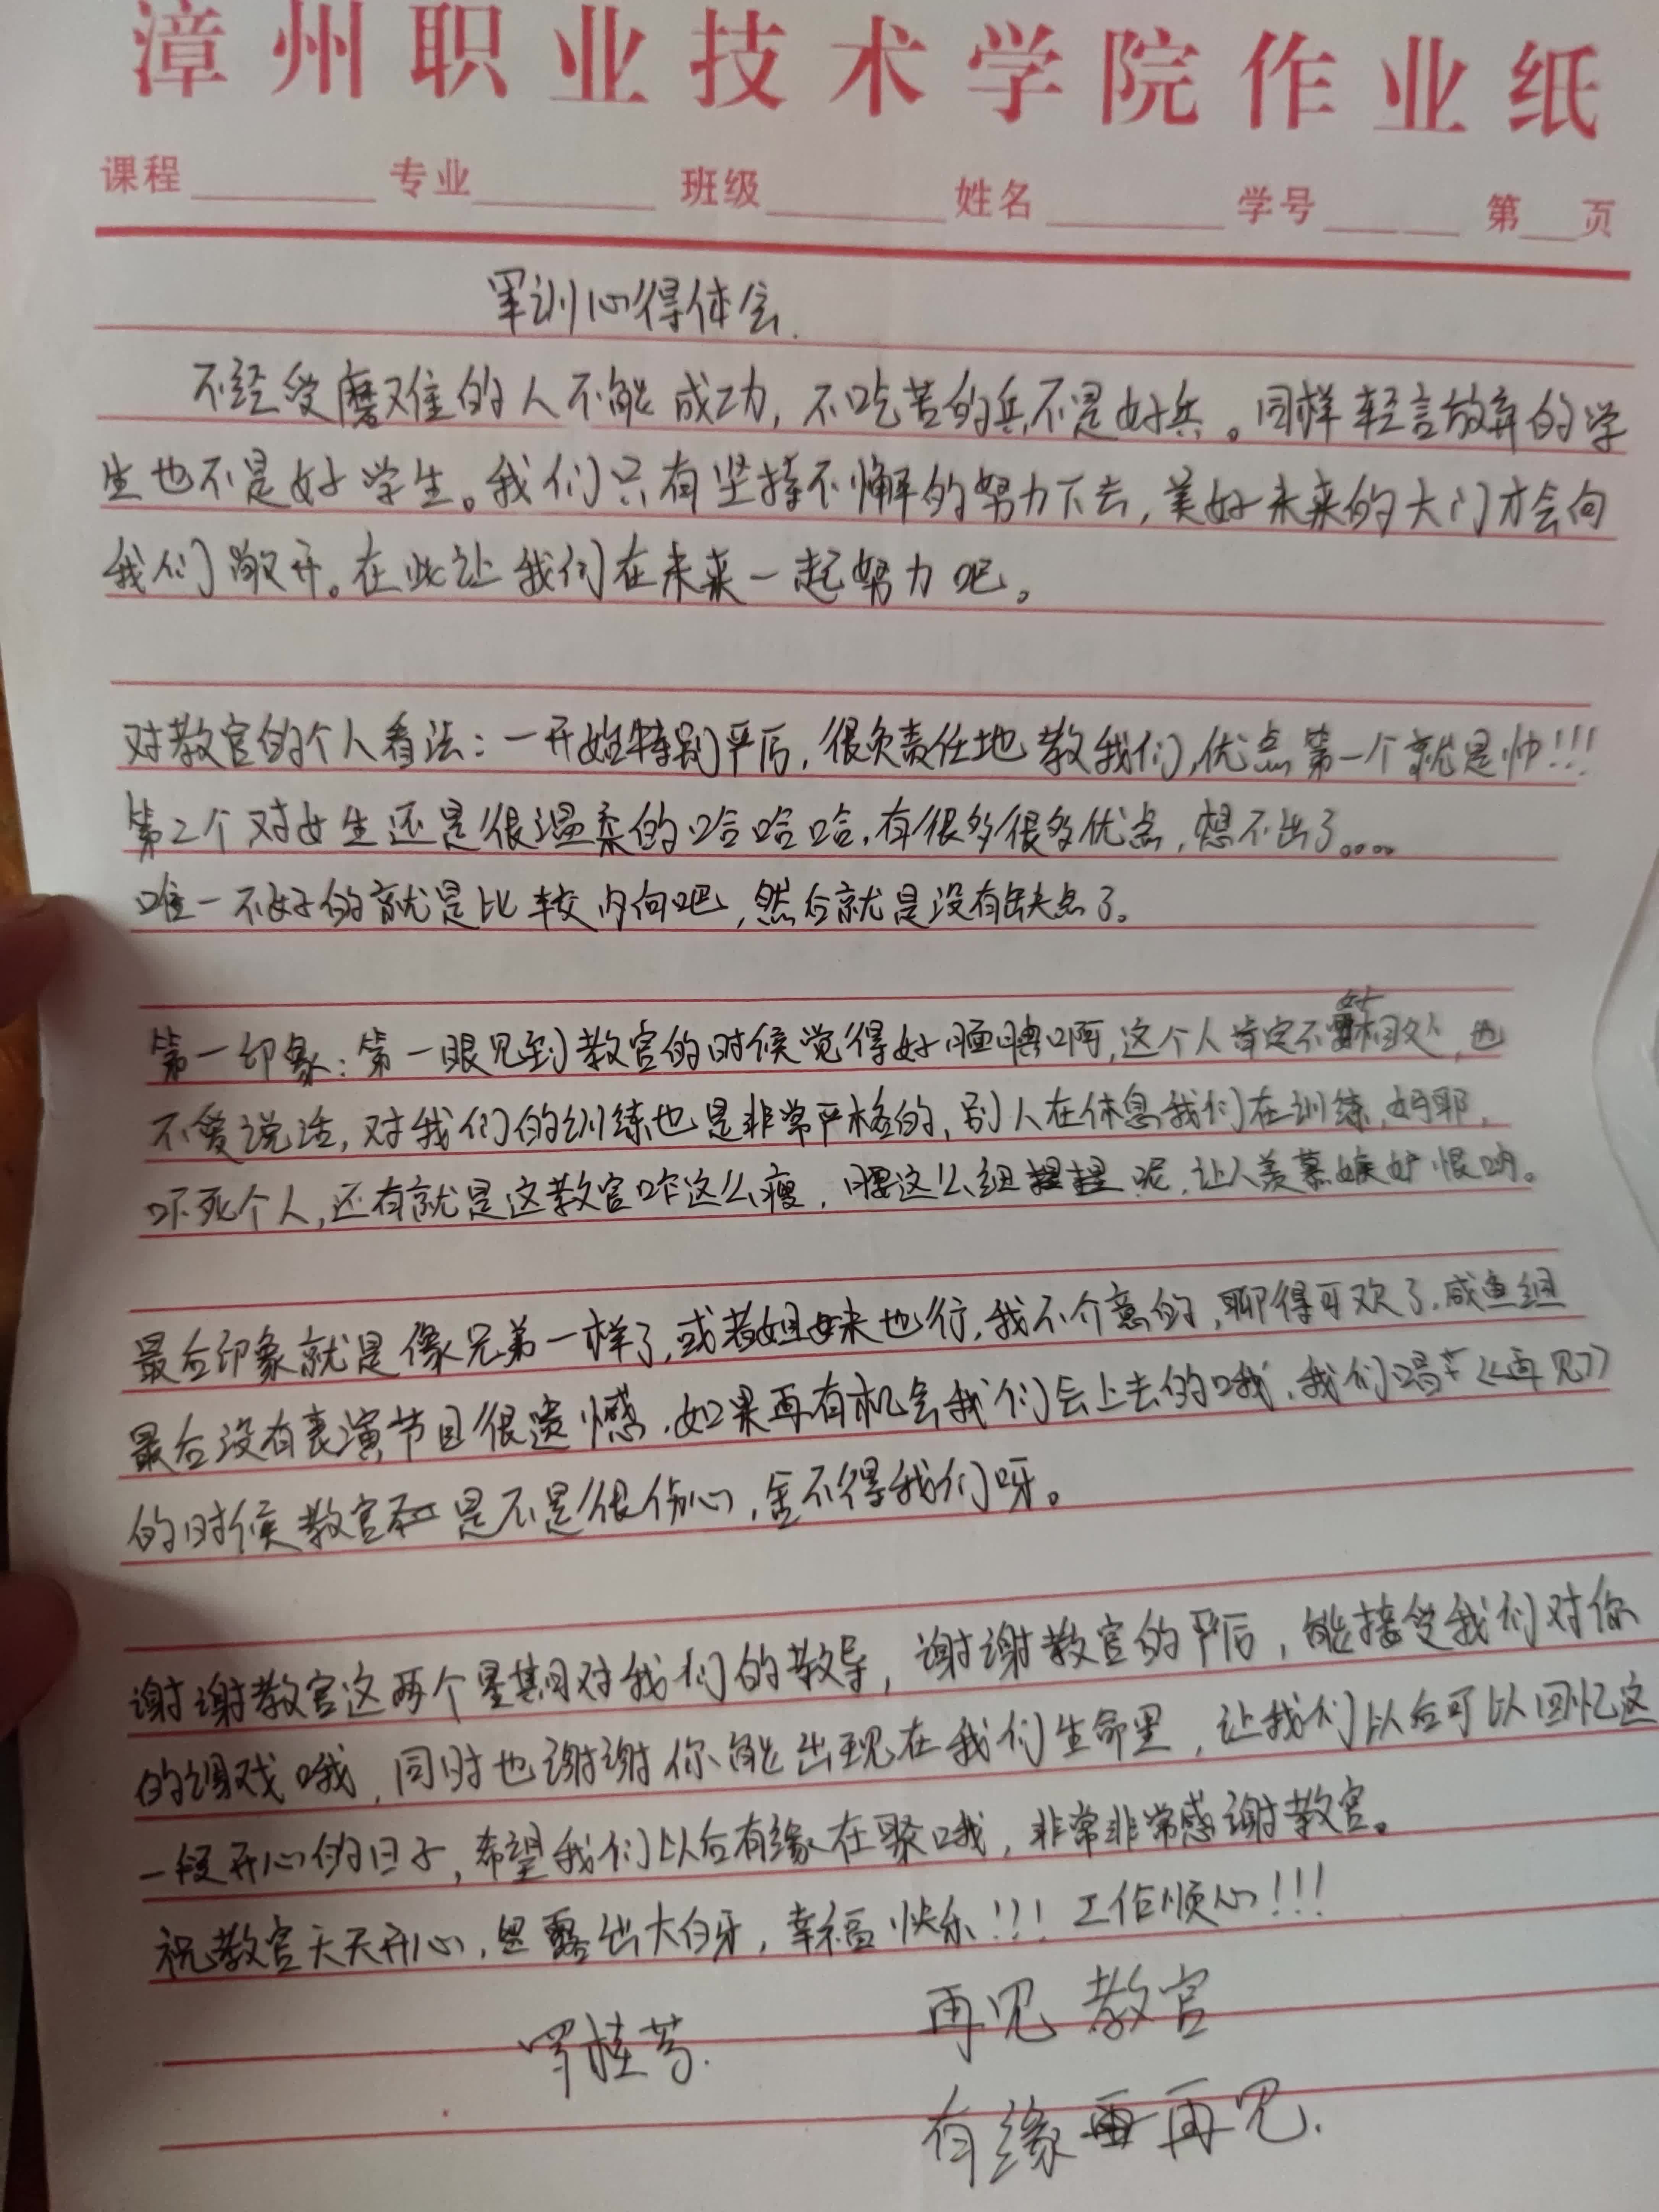 漳州职业技术学院作业纸
课程 专业 班级 姓名 学号 第 页
军训心得体会.
不经受磨难的人不能成功，不吃苦的兵不是好兵。同样轻言放弃的学
生也不是好学生。我们只有坚持不懈的努力下去，美好未来的大门才会向
我们敞开。在此让我们在未来一起努力吧。
对教官的个人看法：一开始特别严厉，很负责任地教我们，优点第一个就是帅!!!
第2个对女生还是很温柔的哈哈哈，有很多很多优点，想不出了。。。。
唯一不好的就是比较内向吧，然后就是没有缺点了。
第一印象：第一眼见到教官的时候觉得好腼腆啊，这个人肯定不好相处，也
不爱说话，对我们的训练也是非常严格的，别人在休息我们在训练，好耶，
吓死个人，还有就是这教官咋这么瘦，腰这么细呢，让人羡慕嫉妒恨呐。
最后印象就是像兄弟一样了，或者姐妹来也行，我不介意的，聊得可欢了，咸鱼组
最后没有表演节目很遗憾，如果再有机会我们会上去的哦，我们唱《再见》
的时候教官是不是很伤心，舍不得我们呀。
谢谢教官这两个星期对我们的教导，谢谢教官的严厉，能接受我们对你
的调戏哦，同时也谢谢你能出现在我们生命里，让我们以后可以回忆这
一段开心的日子，希望我们以后有缘在聚哦，非常非常感谢教官。
祝教官天天开心，露出大白牙，幸福快乐!!! 工作顺心!!!
罗桂芳. 再见教官
有缘再见.